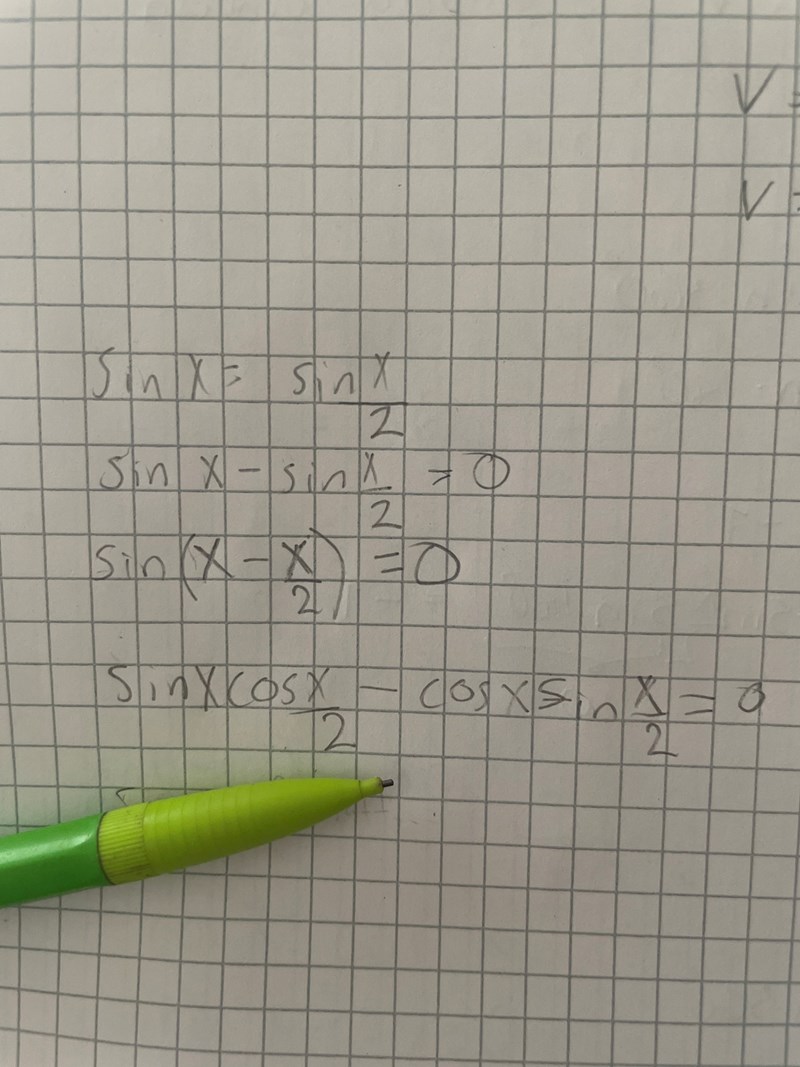 V =
V =
sin x = sin x/2
sin x - sin x/2 = 0
sin(x - x/2) = 0
sin x cos x/2 - cos x sin x/2 = 0